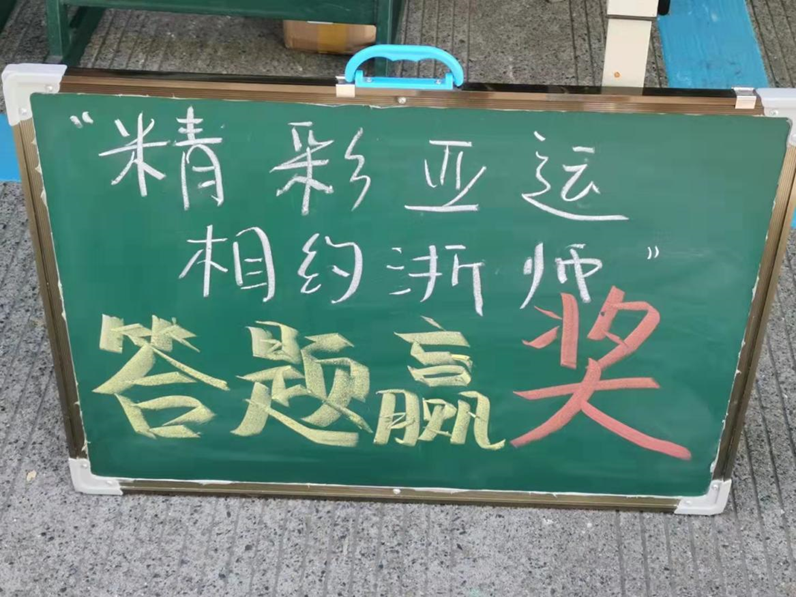 “精彩亚运
相约浙师”
答题赢奖